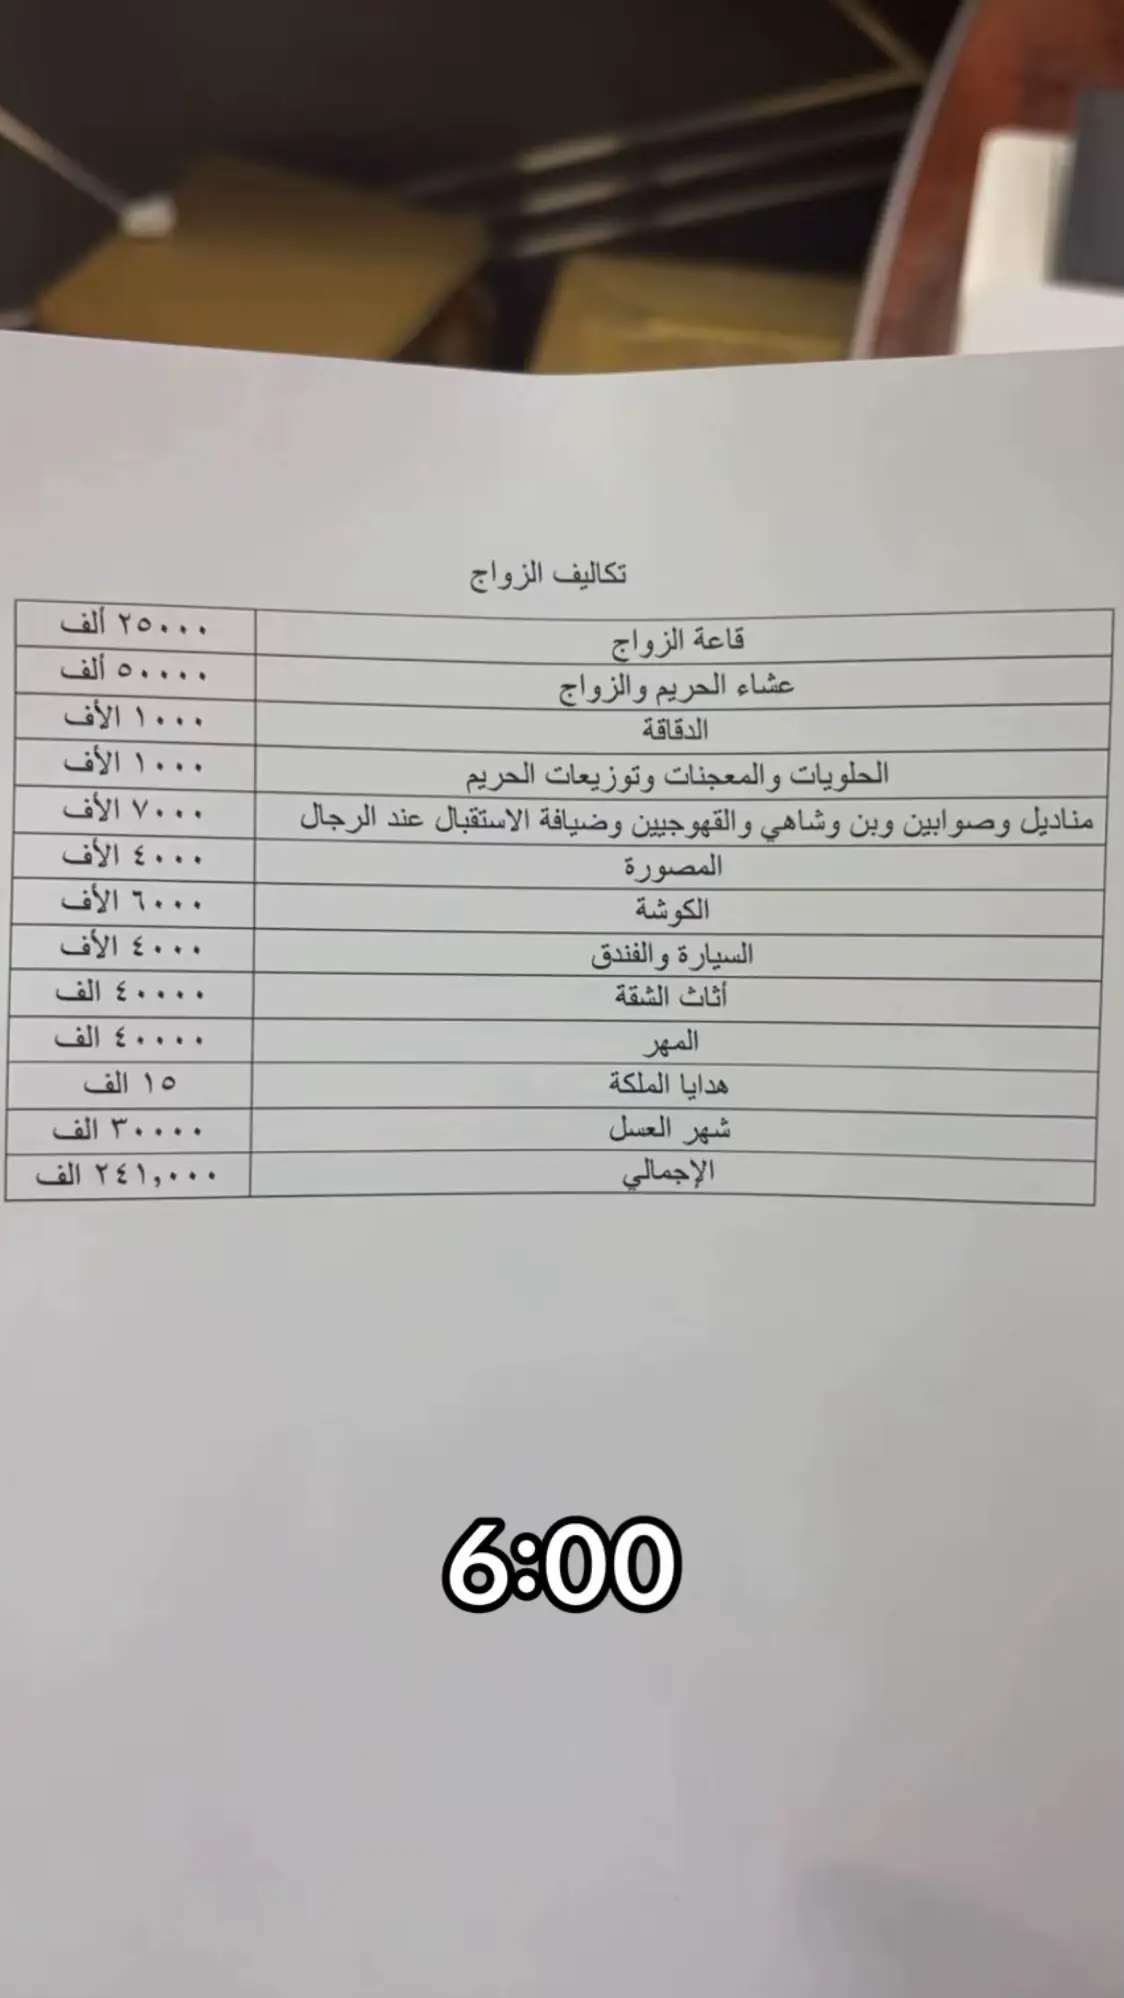 تكاليف الزواج
قاعة الزواج ٢٥٠٠٠ ألف
عشاء الحريم والزواج ٥٠٠٠٠ ألف
الدقاقة ١٠٠٠ الأف
الحلويات والمعجنات وتوزيعات الحريم ١٠٠٠ الأف
مناديل وصوابين وبن وشاهي والقهوجيين وضيافة الاستقبال عند الرجال ٧٠٠٠ الأف
المصورة ٤٠٠٠ الأف
الكوشة ٦٠٠٠ الأف
السيارة والفندق ٤٠٠٠ الأف
أثاث الشقة ٤٠٠٠٠ الف
المهر ٤٠٠٠٠ الف
هدايا الملكة ١٥ الف
شهر العسل ٣٠٠٠٠ الف
الإجمالي ٢٤١,٠٠٠ الف
6:00